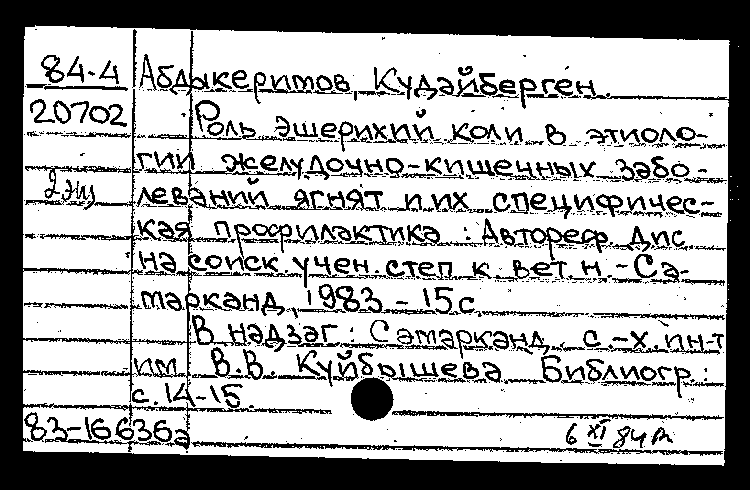 84-4 Абдыкеримов, Кудайберген.
20702 Роль эшерихий коли в этиоло-
гии желудочно-кишечных забо-
2 экз леваний ягнят и их специфичес-
кая профилактика : Автореф. дис
на соиск. учен. степ. к. вет. н. - Са-
марканд, 1983 - 15 с.
В надзаг : Самарканд. с.-х. ин-т
им. В.В. Куйбышева Библиогр.:
с. 14-15.
83-16636а
6 XI 84